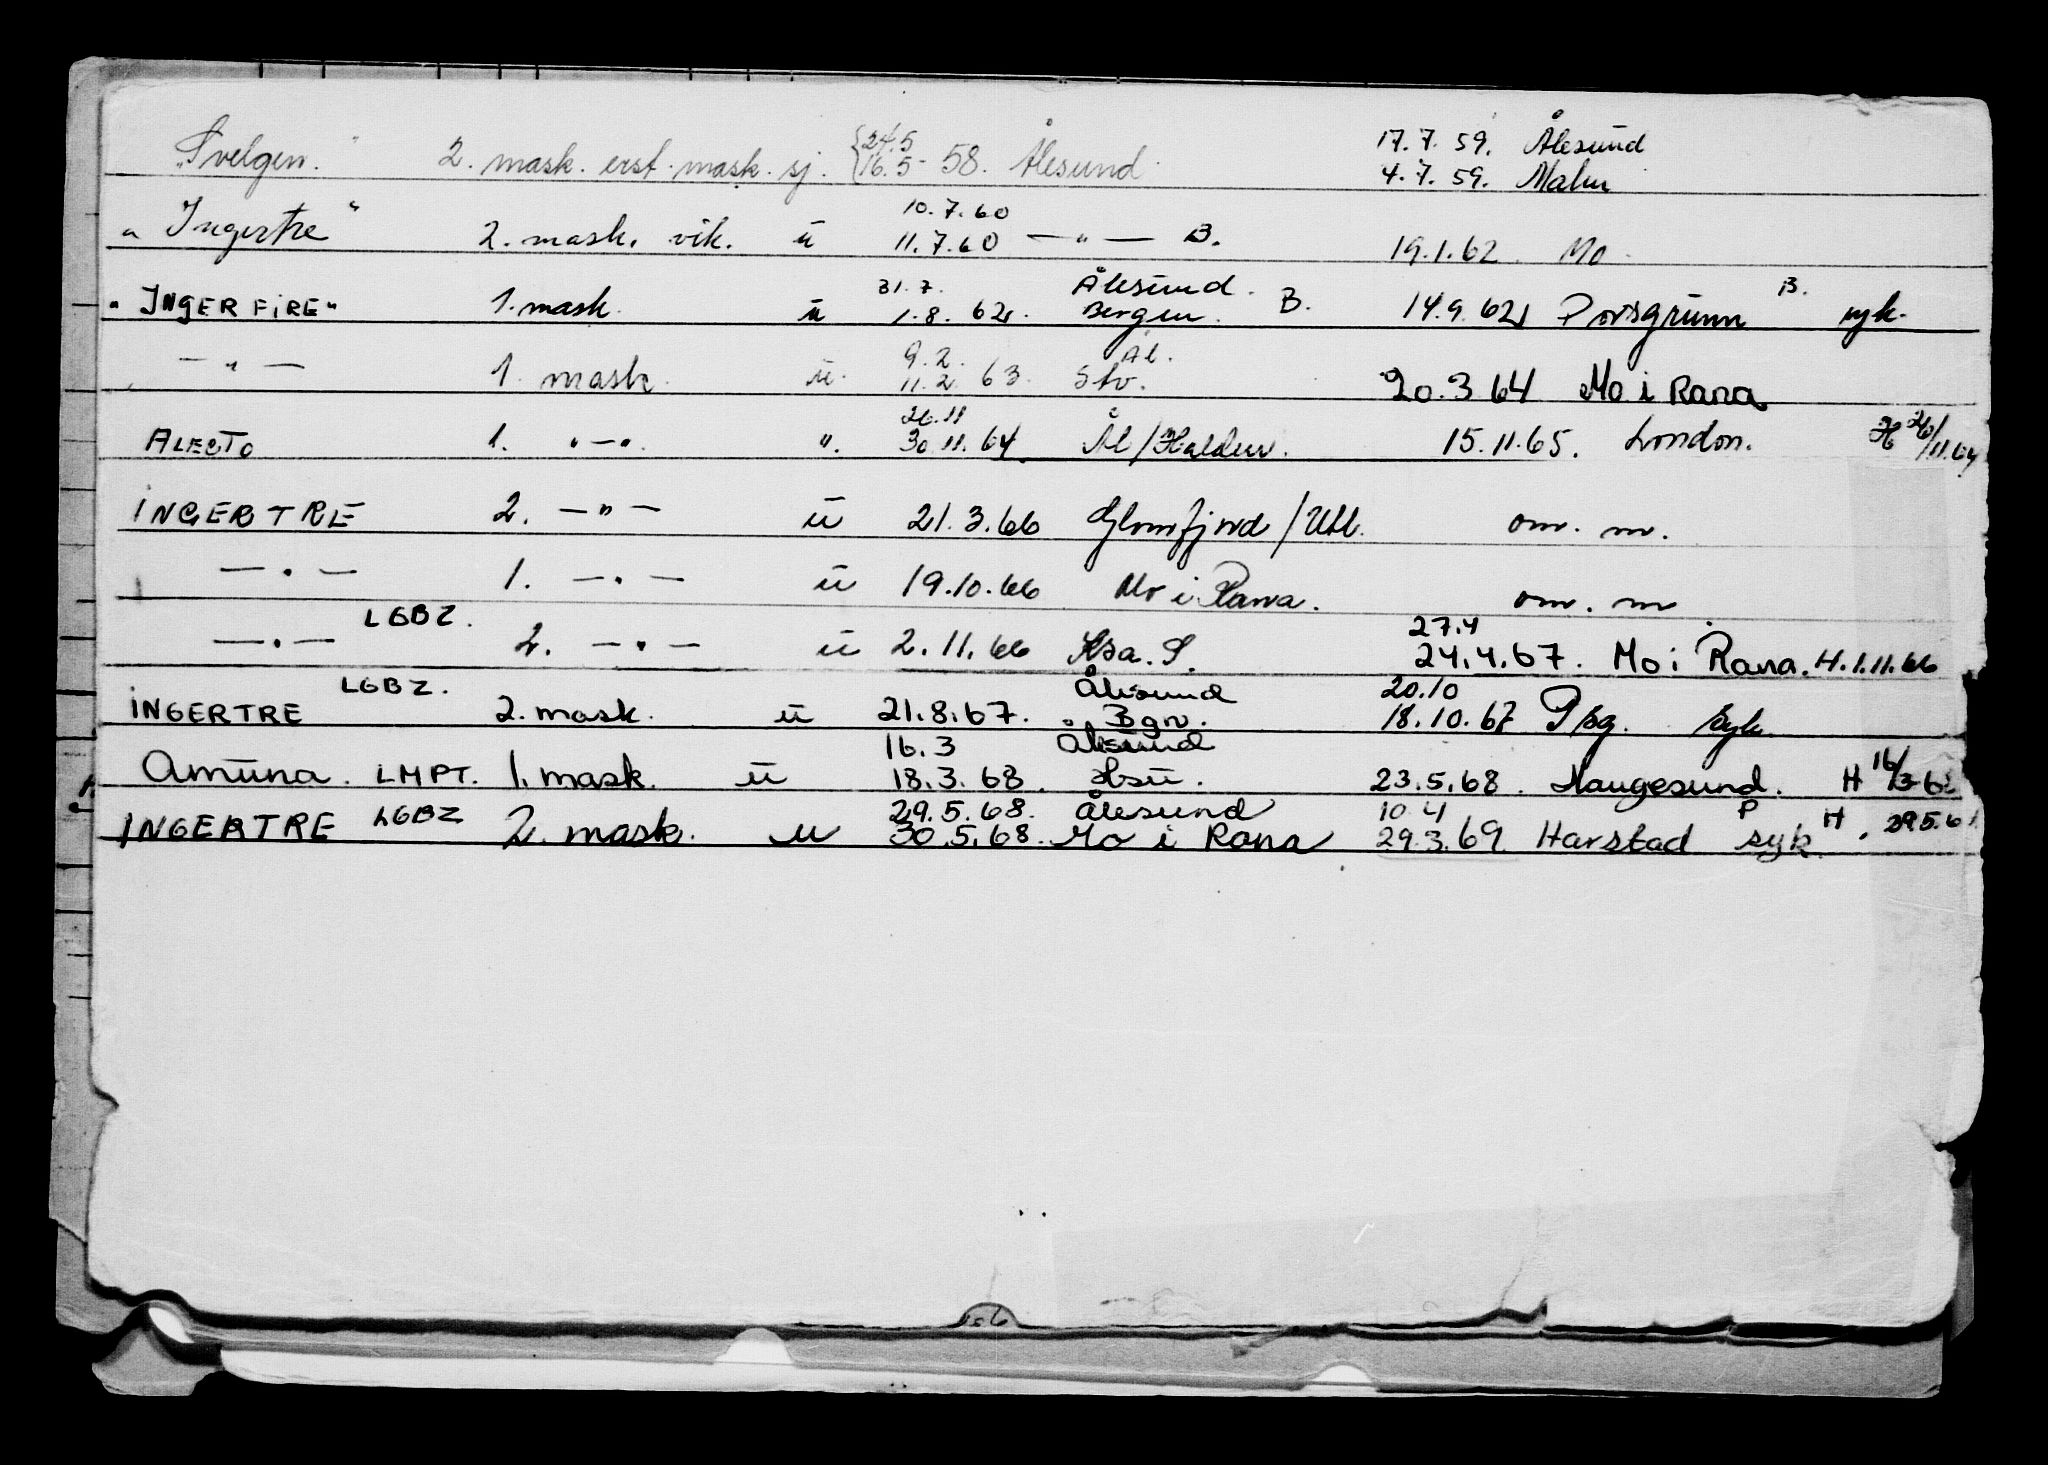 „Svelgen." 2. mask. erst. mask. sj. {24.5 16.5 - 58. Ålesund 17.7.59. Ålesund
4.7.59. Malm
„Ingertre" 2. mask. vik. ū 10.7.60 11.7.60 — " — B. 19.1.62. Mo
"INGER FIRE" 1. mask. ū 31.7. 1.8.62. Ålesund. Bergen. B. 14.9.62 Porsgrunn B. syk.
— " — 1. mask. ū. 9.2. 11.2. 63. Ål. Stv. 20.3.64 Mo i Rana
ALECTO 1. "—". ". 26.11 30.11.64. Ål/Halden. 15.11.65. London. H 26/11.64
INGERTRE 2. — " — ū 21.3.66 Glomfjord/Utl. om. m.
— " — 1. — " — ū 19.10.66 Mo i Rana. om. m
— " — LGBZ. 2. — " — ū 2.11.66 27.4 24.4.67. Mo i Rana. H.1.11.66
INGERTRE LGBZ. 2. mask. ū 21.8.67. Ålesund Bgn. 20.10 18.10.67 Psg. syk.
Amuna. LMPT. 1. mask. ū 16.3 18.3.68. Ålesund Hsu. 23.5.68. Haugesund. H 16/3-68
INGERTRE LGBZ 2. mask. u 29.5.68. 30.5.68. Ålesund Mo i Rana 10.4 29.3.69 Harstad P syk. H. 29.5.68